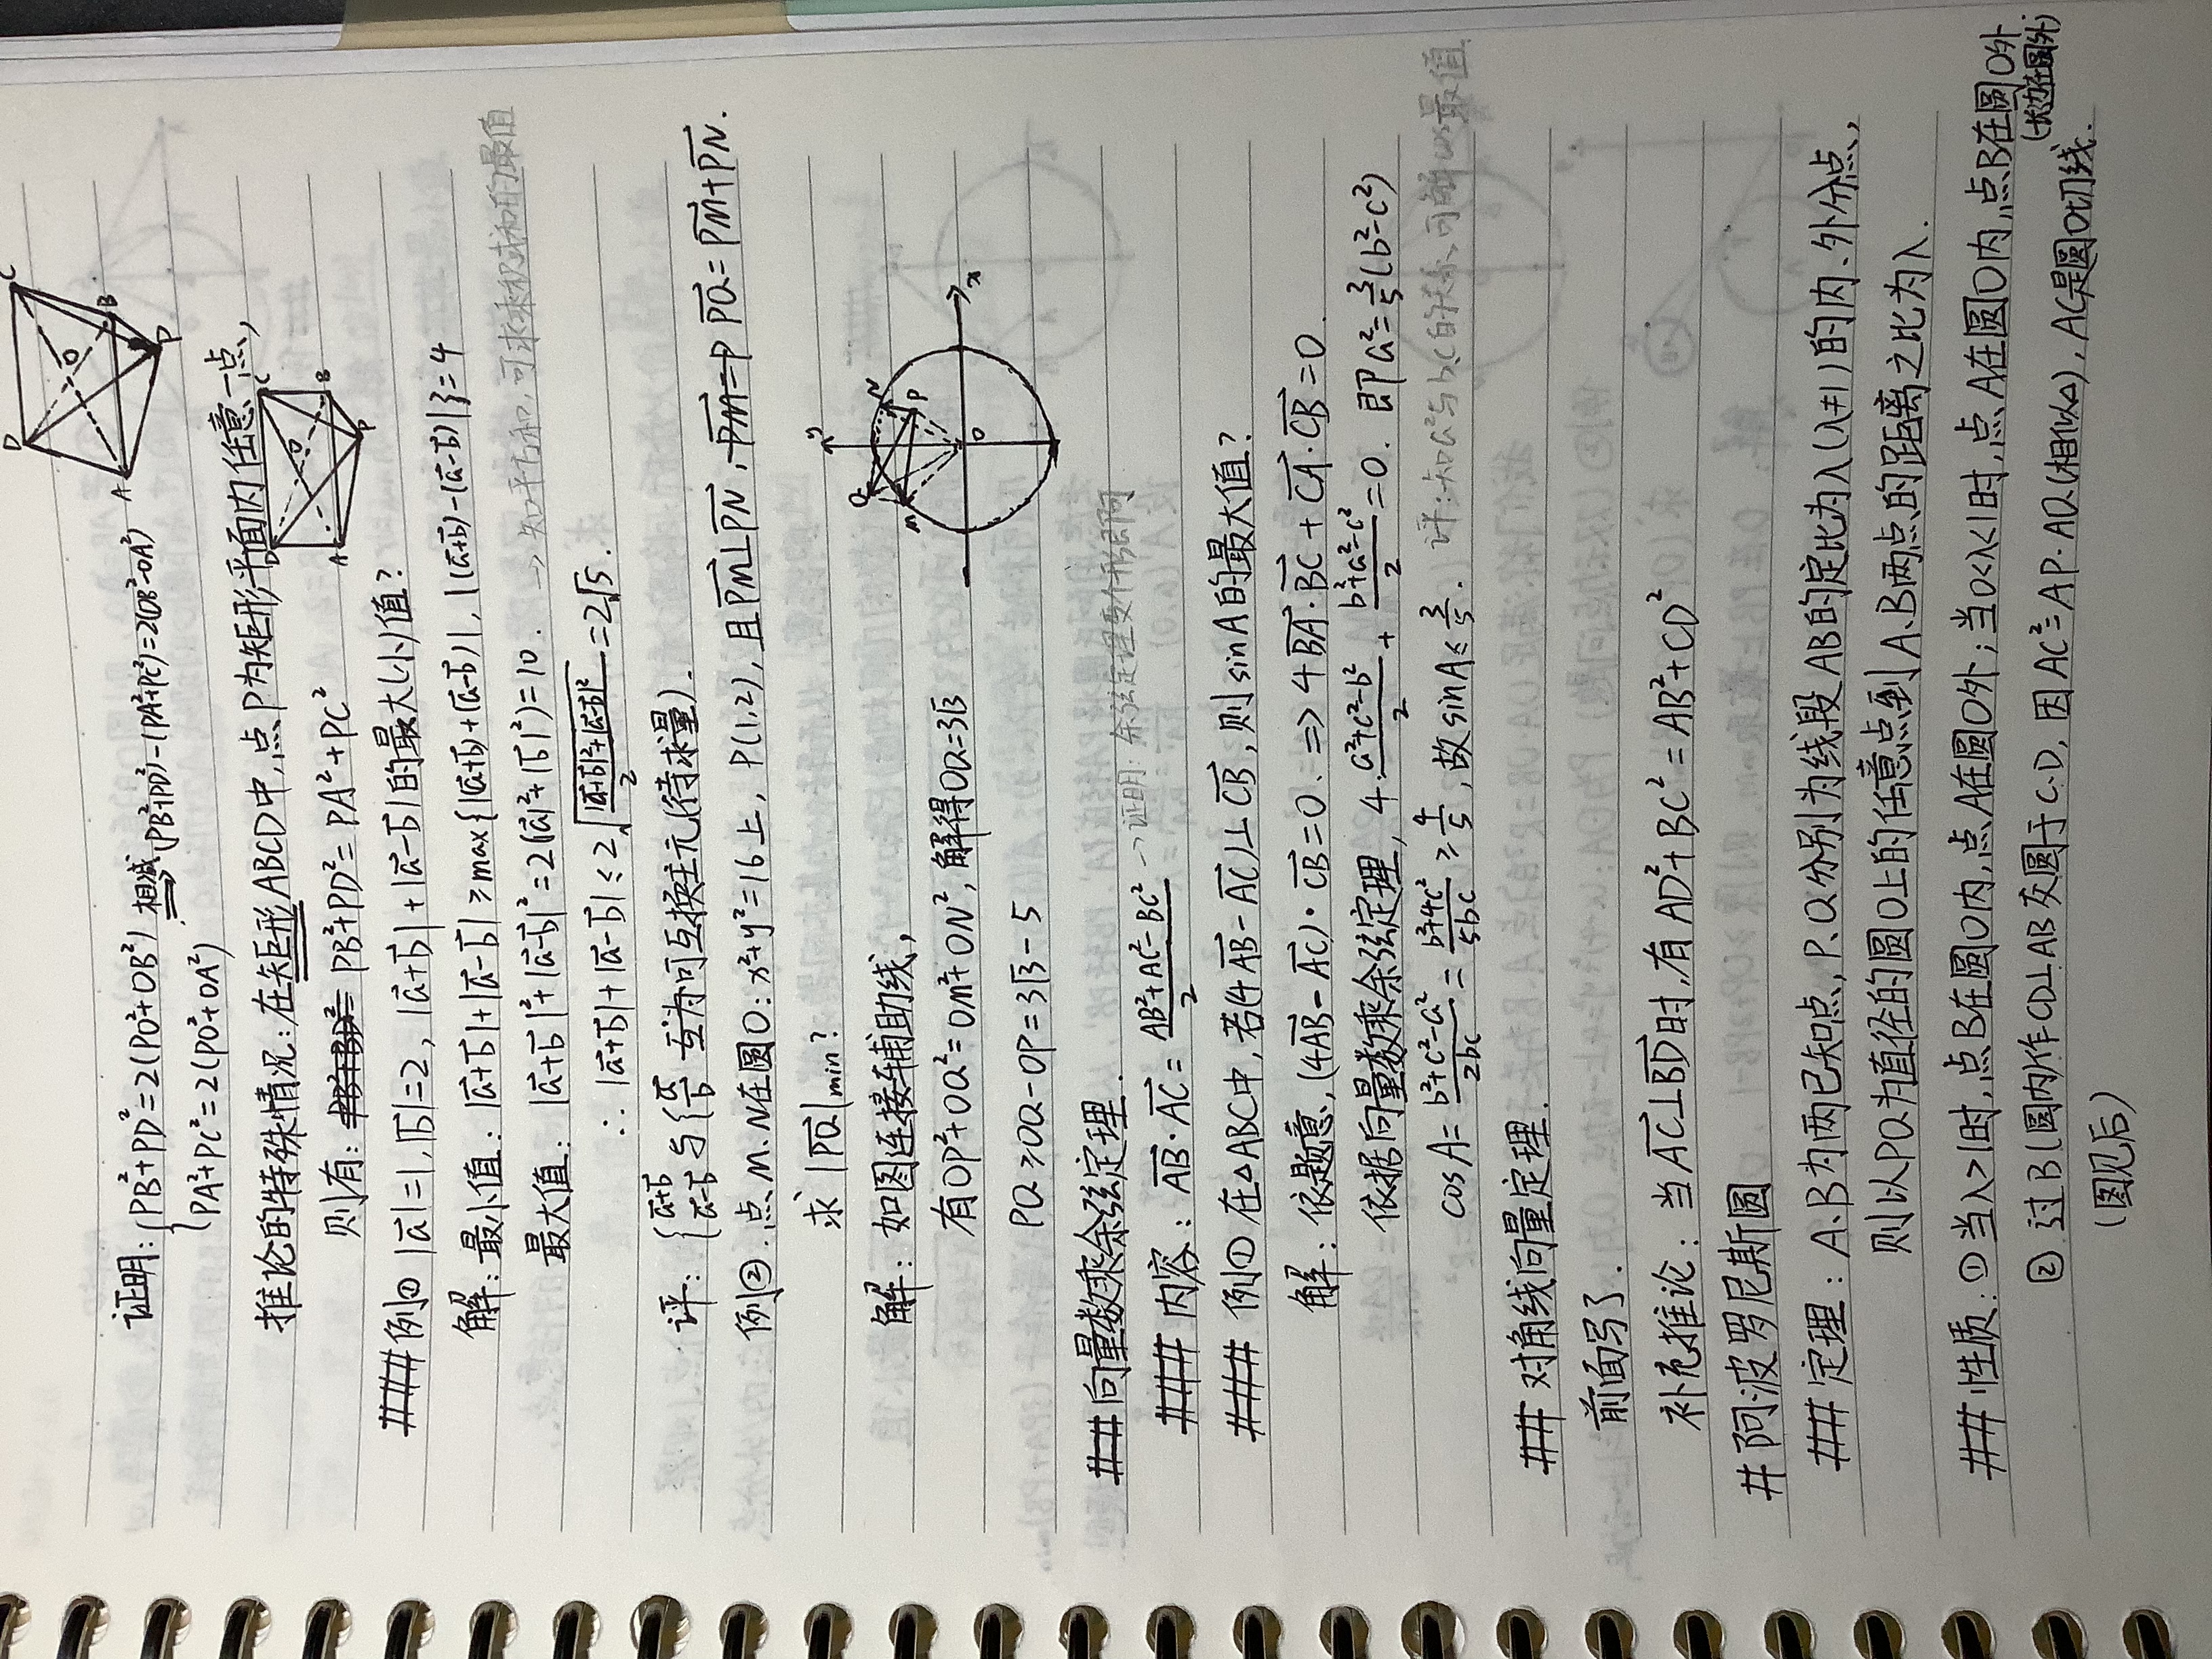 证明:{PB²+PD²=2(PO²+OB²) 相减⇒ (PB²+PD²)-(PA²+PC²)=2(OB²-OA²)
{PA²+PC²=2(PO²+OA²)
推论的特殊情况:在矩形ABCD中,点P为矩形平面内任意一点,
则有: PB²+PD²=PA²+PC²
### 例① |a⃗|=1,|b⃗|=2, |a⃗+b⃗|+|a⃗-b⃗|的最大(小)值?
解:最小值:|a⃗+b⃗|+|a⃗-b⃗|≥max{|(a⃗+b⃗)+(a⃗-b⃗)|, |(a⃗+b⃗)-(a⃗-b⃗)|}=4
最大值:|a⃗+b⃗|²+|a⃗-b⃗|²=2(|a⃗|²+|b⃗|²)=10. →知平方和,可求乘积或和的最值
∴|a⃗+b⃗|+|a⃗-b⃗|≤2√((|a⃗+b⃗|²+|a⃗-b⃗|²)/2)=2√5.
评:{a⃗+b⃗ a⃗-b⃗ 与{a⃗ b⃗ 互为可互换主元(待求量).
例②:点M.N在圆O:x²+y²=16上, P(1,2), 且PM⃗⊥PN⃗, PQ⃗=PM⃗+PN⃗.
求|PQ⃗|min?
解:如图连接辅助线,
有OP²+OQ²=OM²+ON²,解得OQ=3√3
PQ≥OQ-OP=3√3-√5
## 向量数乘余弦定理.
### 内容:AB⃗·AC⃗=(AB²+AC²-BC²)/2 →证明:余弦定理变个形即可
### 例① 在△ABC中,若(4AB⃗-AC⃗)⊥CB⃗,则sinA的最大值?
解:依题意,(4AB⃗-AC⃗)·CB⃗=0.⇒4BA⃗·BC⃗+CA⃗·CB⃗=0.
依据向量数乘余弦定理, 4·(a²+c²-b²)/2+(b²+a²-c²)/2=0. 即a²=3/5(b²-c²)
cosA=(b²+c²-a²)/2bc=(b²+4c²)/5bc≥4/5,故sinA≤3/5. 评:知a²与b,c的关系,可解cos最值
## 对角线向量定理.
前面写了.
补充推论:当AC⃗⊥BD⃗时,有AD²+BC²=AB²+CD²
# 阿波罗尼斯圆
## 定理:A.B为两已知点,P.Q分别为线段AB的定比为λ(λ≠1)的内、外分点,
则以PQ为直径的圆O上的任意点到A.B两点的距离之比为λ.
## 性质:①当λ>1时,点B在圆O内,点A在圆O外;当0<λ<1时,点A在圆O内,点B在圆O外.
(长边在圆外)
②过B(圆内)作CD⊥AB交圆于C.D,因AC²=AP·AQ(相似△),AC是圆O切线.
(图见后)